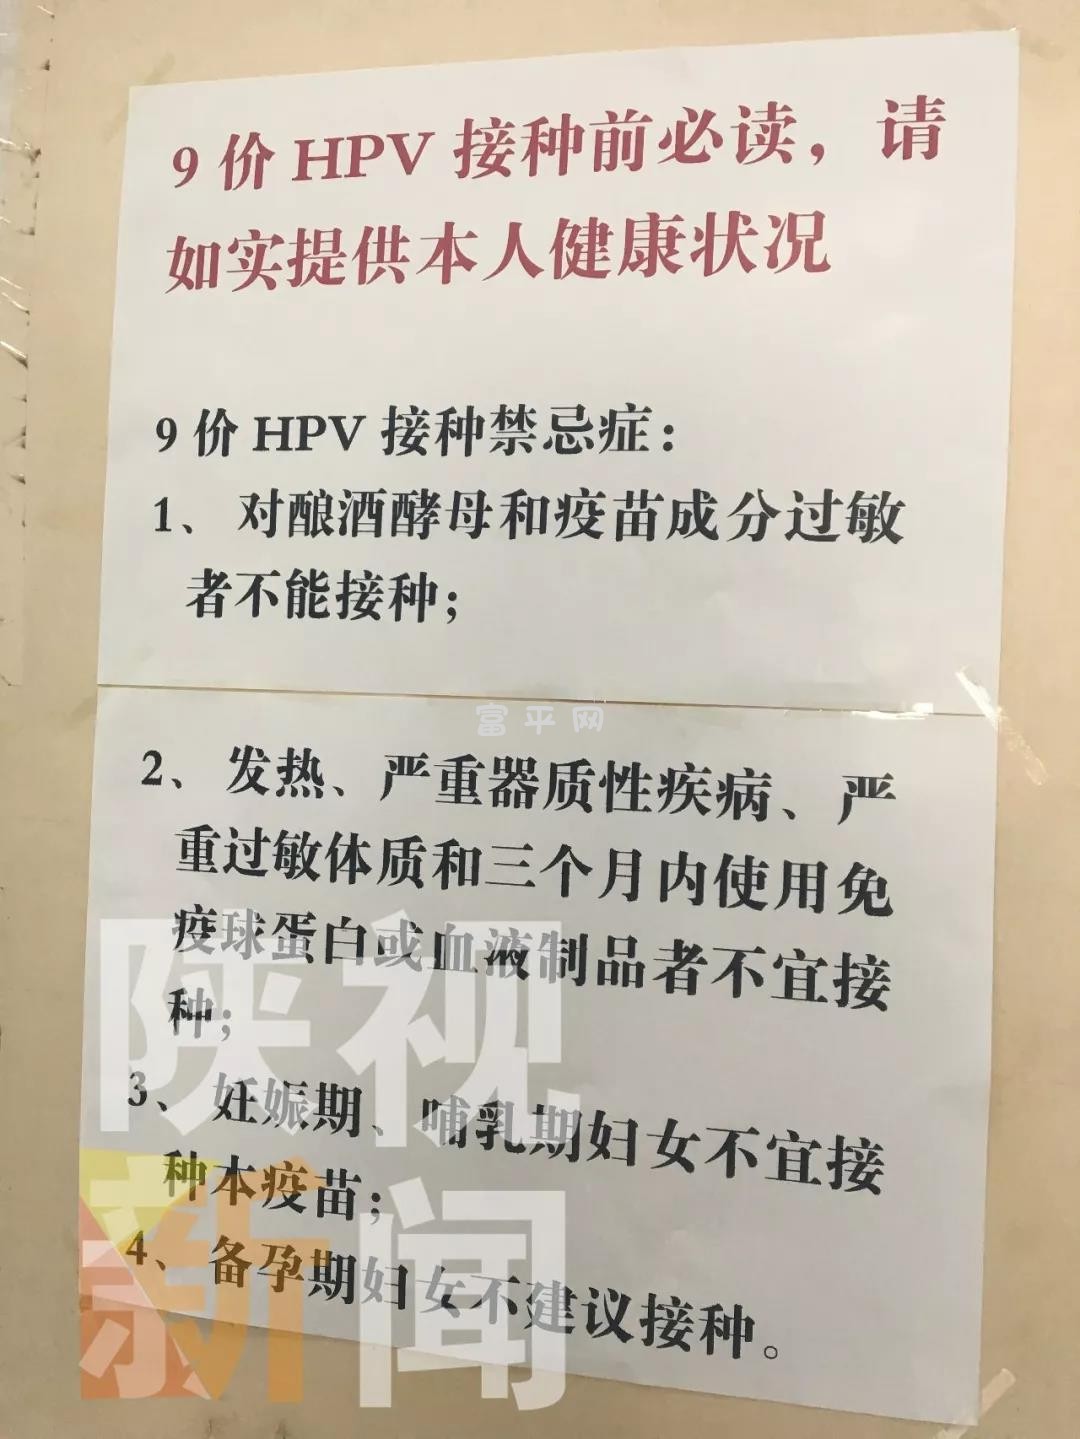 9价HPV接种前必读，请
如实提供本人健康状况
9价HPV接种禁忌症：
1、对酿酒酵母和疫苗成分过敏
者不能接种；
富平网
2、发热、严重器质性疾病、严
重过敏体质和三个月内使用免
疫球蛋白或血液制品者不宜接
种；
3、妊娠期、哺乳期妇女不宜接
种本疫苗；
4、备孕期妇女不建议接种。
陕视
新闻